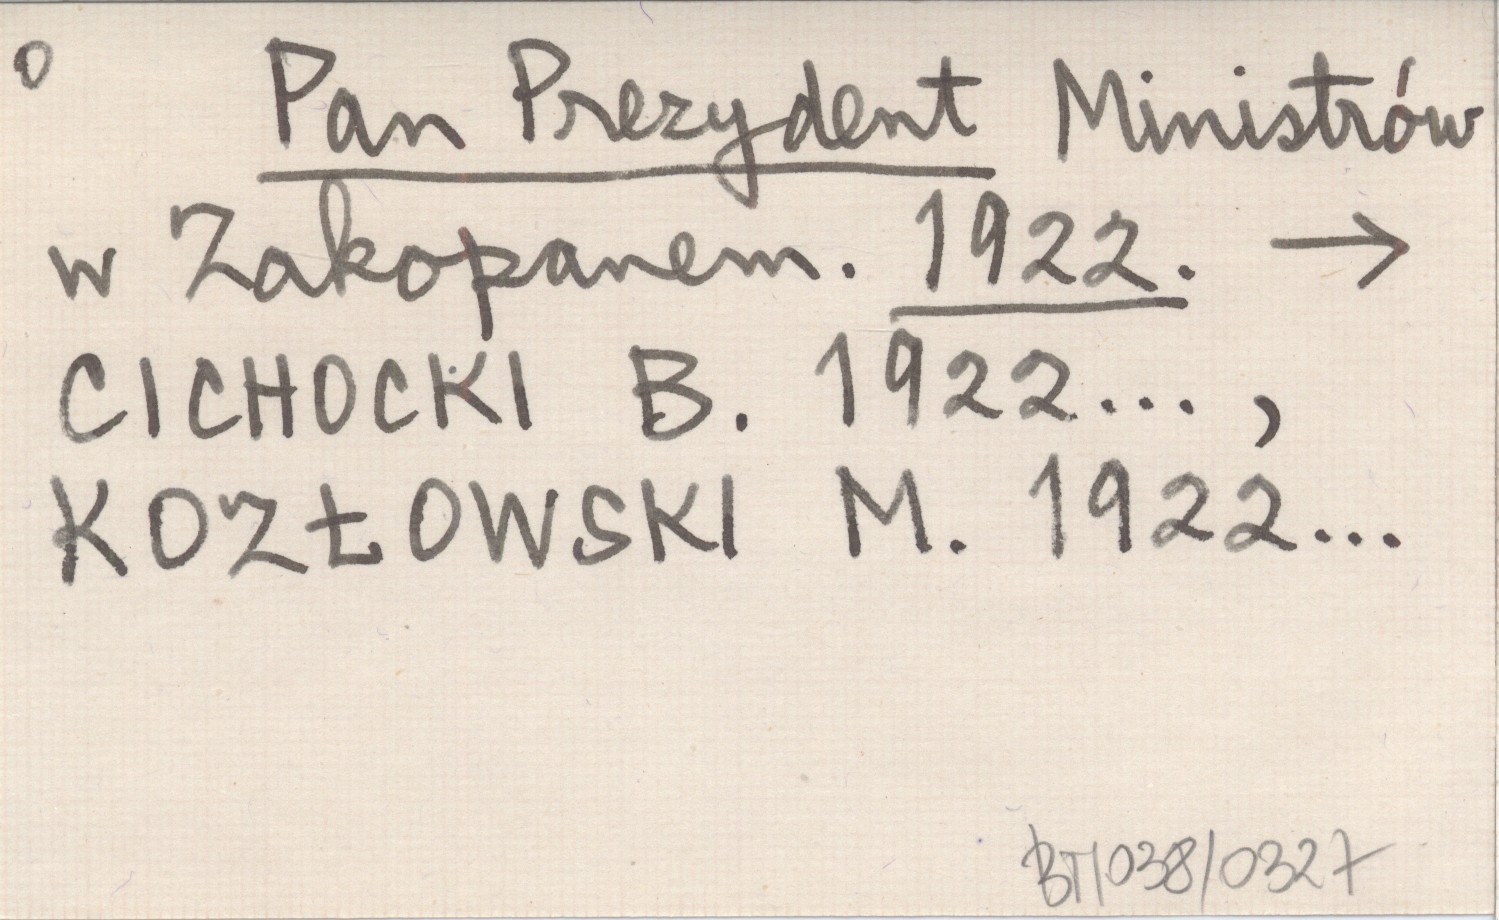 o Pan Prezydent Ministrów
w Zakopanem. 1922. →
CICHOCKI B. 1922... ,
KOZŁOWSKI M. 1922...
BT/038/0327